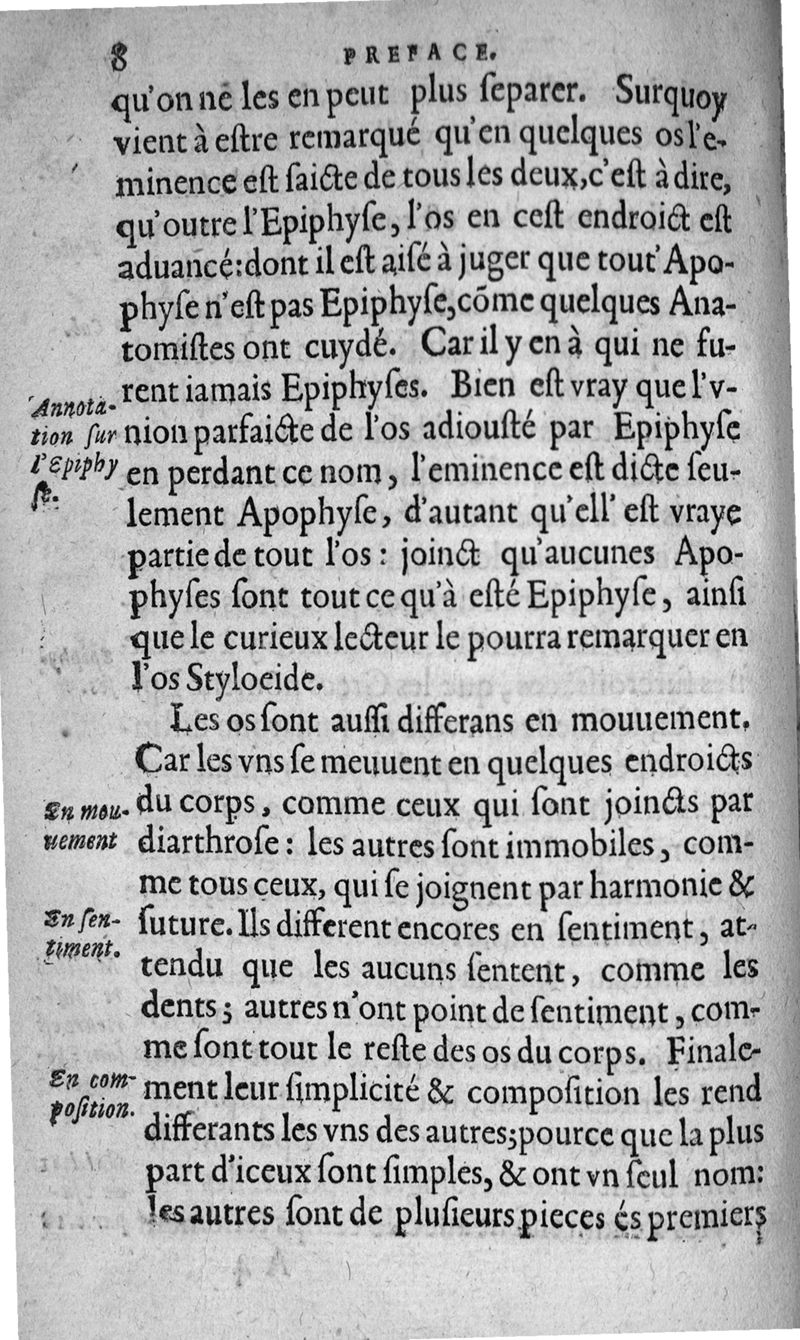 8 PREFACE.
qu'on ne les en peut plus ſeparer. Surquoy
vient à eſtre remarqué qu'en quelques os l'e-
minence eſt faicte de tous les deux, c'eſt à dire,
qu'outre l'Epiphyſe, l'os en ceſt endroict eſt
aduancé: dont il eſt aiſé à juger que tout' Apo-
phyſe n'eſt pas Epiphyſe, cõme quelques Ana-
tomiſtes ont cuydé. Car il y en à qui ne fu-
rent iamais Epiphyſes. Bien eſt vray que l'v-
nion parfaicte de l'os adiouſté par Epiphyſe
en perdant ce nom, l'eminence eſt dicte ſeu-
lement Apophyſe, d'autant qu'ell' eſt vraye
partie de tout l'os: joinct qu'aucunes Apo-
phyſes ſont tout ce qu'à eſté Epiphyſe, ainſi
que le curieux lecteur le pourra remarquer en
l'os Styloeide.
Annota-
tion ſur
l'Epiphy
ſe.
Les os ſont auſſi differans en mouuement.
Car les vns ſe meuuent en quelques endroicts
du corps, comme ceux qui ſont joincts par
diarthroſe: les autres ſont immobiles, com-
me tous ceux, qui ſe joignent par harmonie &
ſuture. Ils different encores en ſentiment, at-
tendu que les aucuns ſentent, comme les
dents; autres n'ont point de ſentiment, com-
me ſont tout le reſte des os du corps. Finale-
ment leur ſimplicité & compoſition les rend
differants les vns des autres; pource que la plus
part d'iceux ſont ſimples, & ont vn ſeul nom:
les autres ſont de pluſieurs pieces és premiers
En mou-
uement
En ſen-
timent.
En com-
poſition.